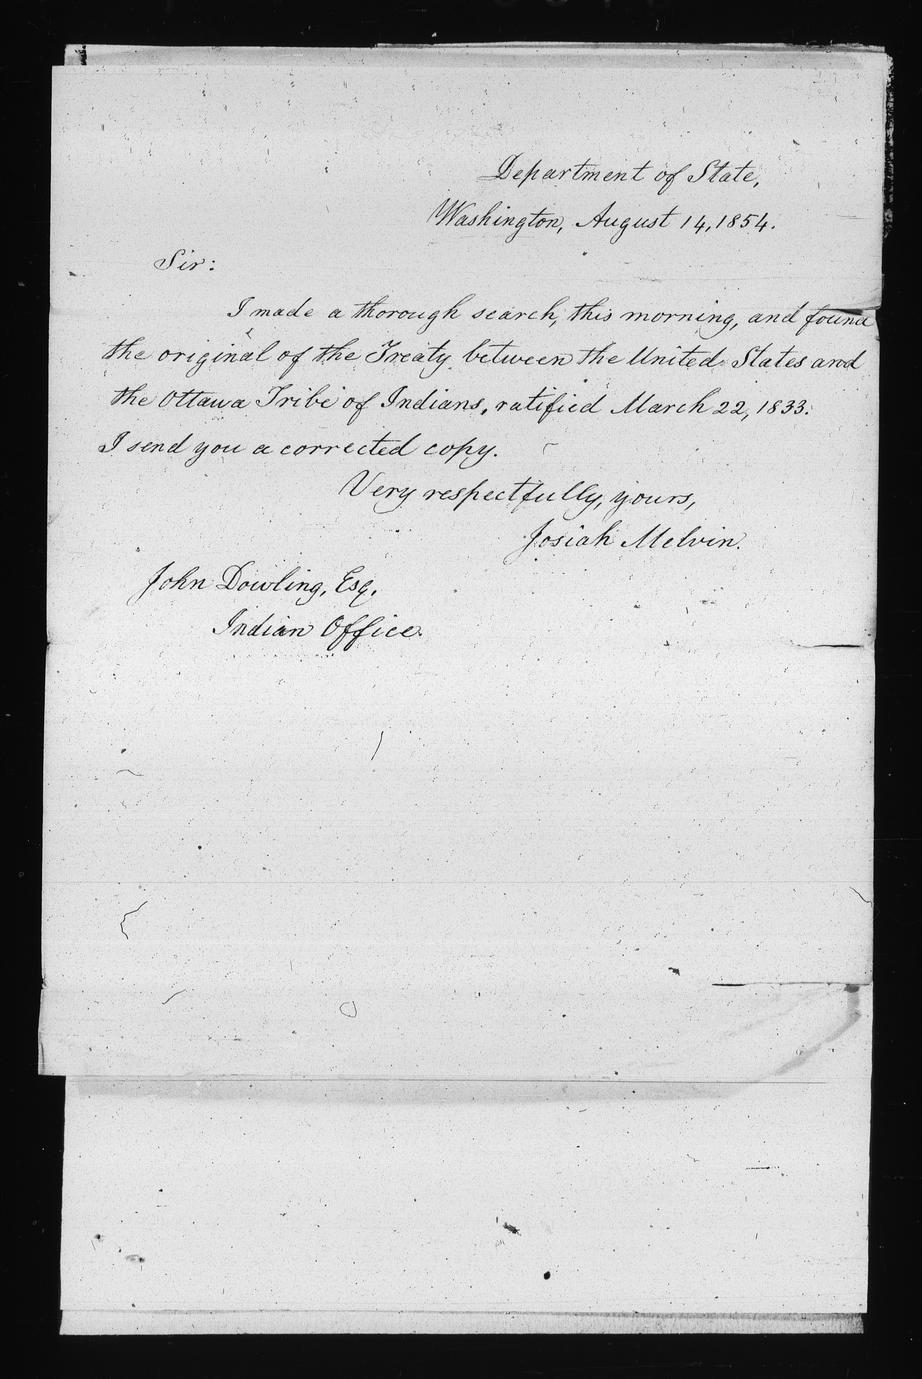 Department of State,
Washington, August 14, 1854.
Sir:
I made a thorough search, this morning, and found
the original of the Treaty between the United States and
the Ottawa Tribe of Indians, ratified March 22, 1833.
I send you a corrected copy.
Very respectfully, yours,
Josiah Melvin.
John Dowling, Esq.
Indian Office.